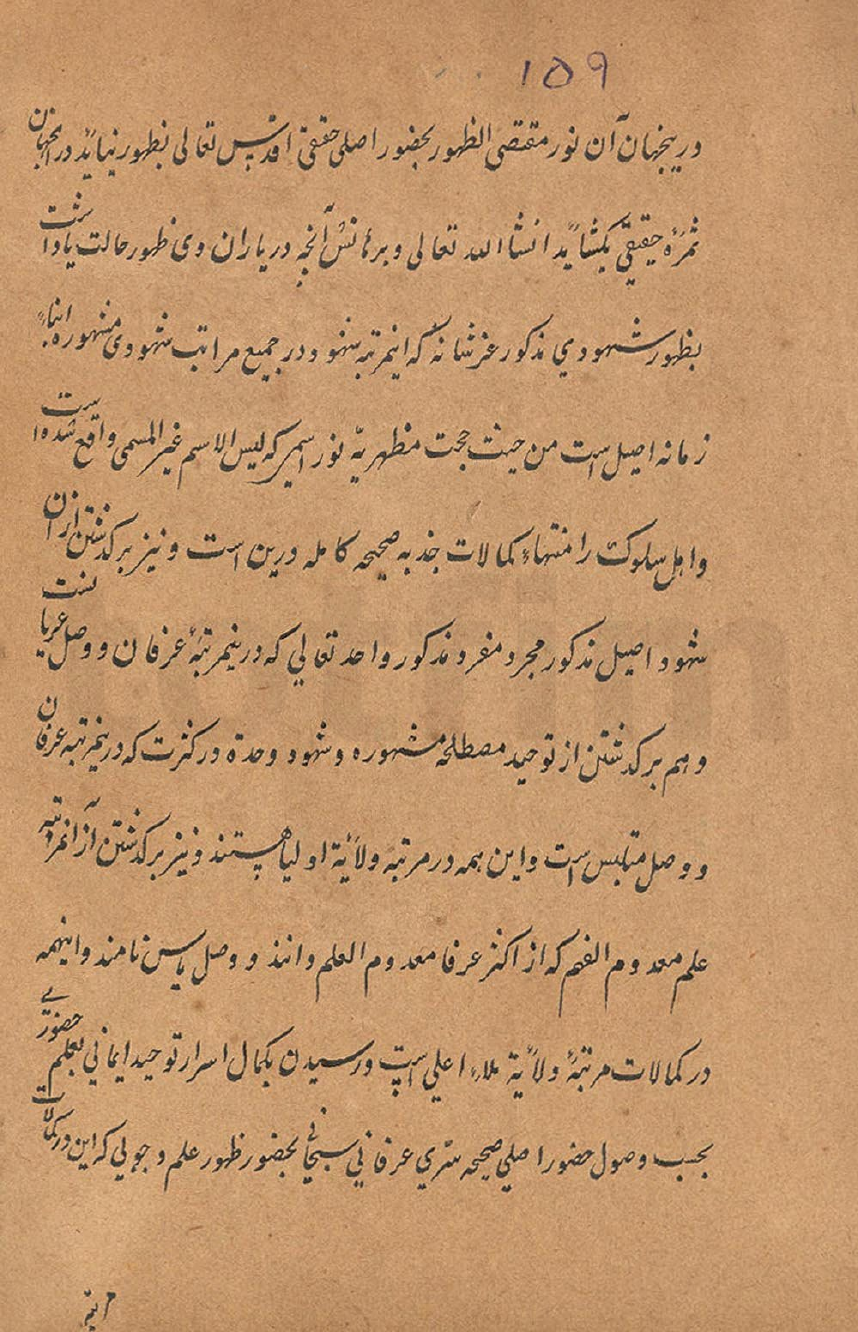 ۱۵۹
درینجهان آن نور مقتضی الظهور بحضور اصلی حقیقی اقدس تعالی بظهور نیاید در آنجهان
ثمرهٔ حقیقی بکشاید انشاالله تعالی و برهانش آنچه در یاران وی ظهور حالت یاد داشت
بظهور شهودی مذکور عز شانه که اینمرتبه شهود در جمیع مراتب شهودی مشهوره ابناء
زمانه اصیل است من حیث حجت مظهریه نور اسمی که لیس الاسم غیر المسمی واقع شده است
و اهل سلوک را منتهاء کمالات جذبه صحیحه کامله درین است و نیز برگذشتن ازان
شهود اصیل مذکور مجرد منفرد مذکور واحد تعالی که درینمرتبهٔ عرفان و وصل عریانست
و هم برگذشتن از توحید مصطلحه مشهوره و شهود وحدة در کثرت که درینمرتبه عرفان
و وصل متلبس است و این همه در مرتبه ولایة اولیا هستند و نیز برگذشتن از آنمرتبه
علم معدوم الفهم که از اکثر عرفا معدوم العلم دانند و وصل یاس نامند و اینهمه
در کمالات مرتبهٔ ولایة ملاء اعلی است و رسیدن بکمال اسرار توحید ایمانی بعلم حضوری
بحسب وصول حضور اصلی صحیحه سری عرفانی سبحانی بحضور ظهور علم وجوبی که این در کمالات